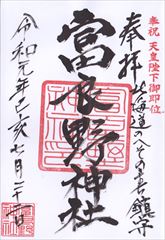 奉祝 天皇陛下御即位
奉拝 北海道のへそ 富良野鎮守
富良野神社
令和元年己亥七月二十二日